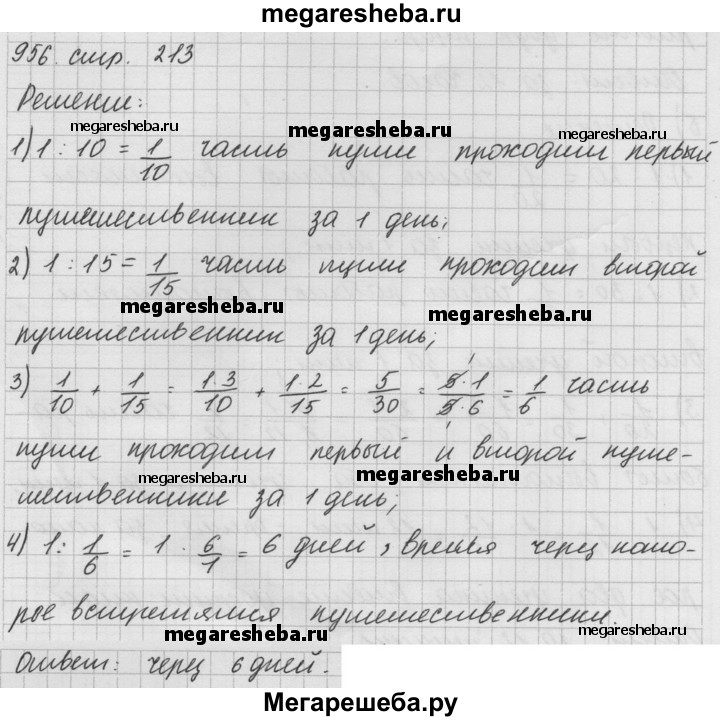 megaresheba.ru
956. стр. 213
Решение:
megaresheba.ru megaresheba.ru megaresheba.ru
1) 1 : 10 = 1/10 часть пути проходит первый
путешественник за 1 день;
2) 1 : 15 = 1/15 часть пути проходит второй
megaresheba.ru megaresheba.ru
путешественник за 1 день;
3) 1/10 + 1/15 = 1·3/10 + 1·2/15 = 5/30 = 5·1/5·6 = 1/6 часть
пути проходит первый и второй путе-
megaresheba.ru megaresheba.ru megaresheba.ru
шественники за 1 день;
4) 1 : 1/6 = 1 · 6/1 = 6 дней, время через кото-
рое встретятся путешественники.
megaresheba.ru megaresheba.ru megaresheba.ru
Ответ: через 6 дней.
Мегарешеба.ру